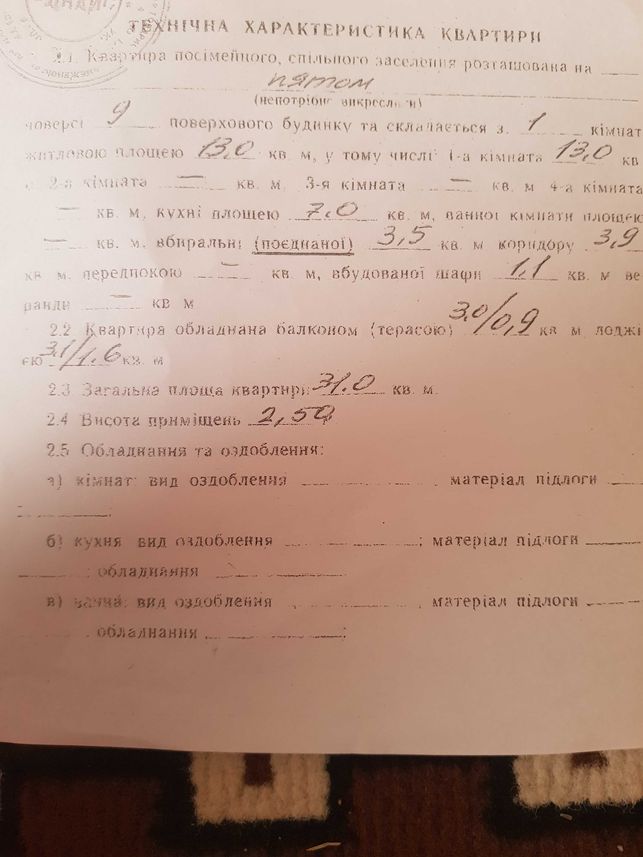 ТЕХНІЧНА ХАРАКТЕРИСТИКА КВАРТИРИ
2.1 Квартира посімейного, спільного заселення розташована на
пятом
(непотрібне викреслити)
поверсі 9 поверхового будинку та складається з 1 кімнат
житловою площею 13,0 кв м, у тому числі: 1-а кімната 13,0 кв
м. 2-а кімната — кв. м, 3-я кімната — кв м 4-а кімната
— кв. м, кухні площею 7,0 кв. м, ванної кімнати площею
— кв. м, вбиральні (поєднаної) 3,5 кв м коридору 3,9
кв м, передпокою — кв. м, вбудованої шафи 1,1 кв. м ве
ранди — кв м
2.2 Квартира обладнана балконом (терасою) 3.0/0,9 кв м, лоджі
єю 3.1/1.6 кв. м
2.3 Загальна площа квартири 31.0 кв. м.
2.4 Висота приміщень 2,50
2.5 Обладнання та оздоблення:
а) кімнат: вид оздоблення , матеріал підлоги
;
б) кухня вид оздоблення ; матеріал підлоги
; обладнання
в) ванна: вид оздоблення , матеріал підлоги
, обладнання ;